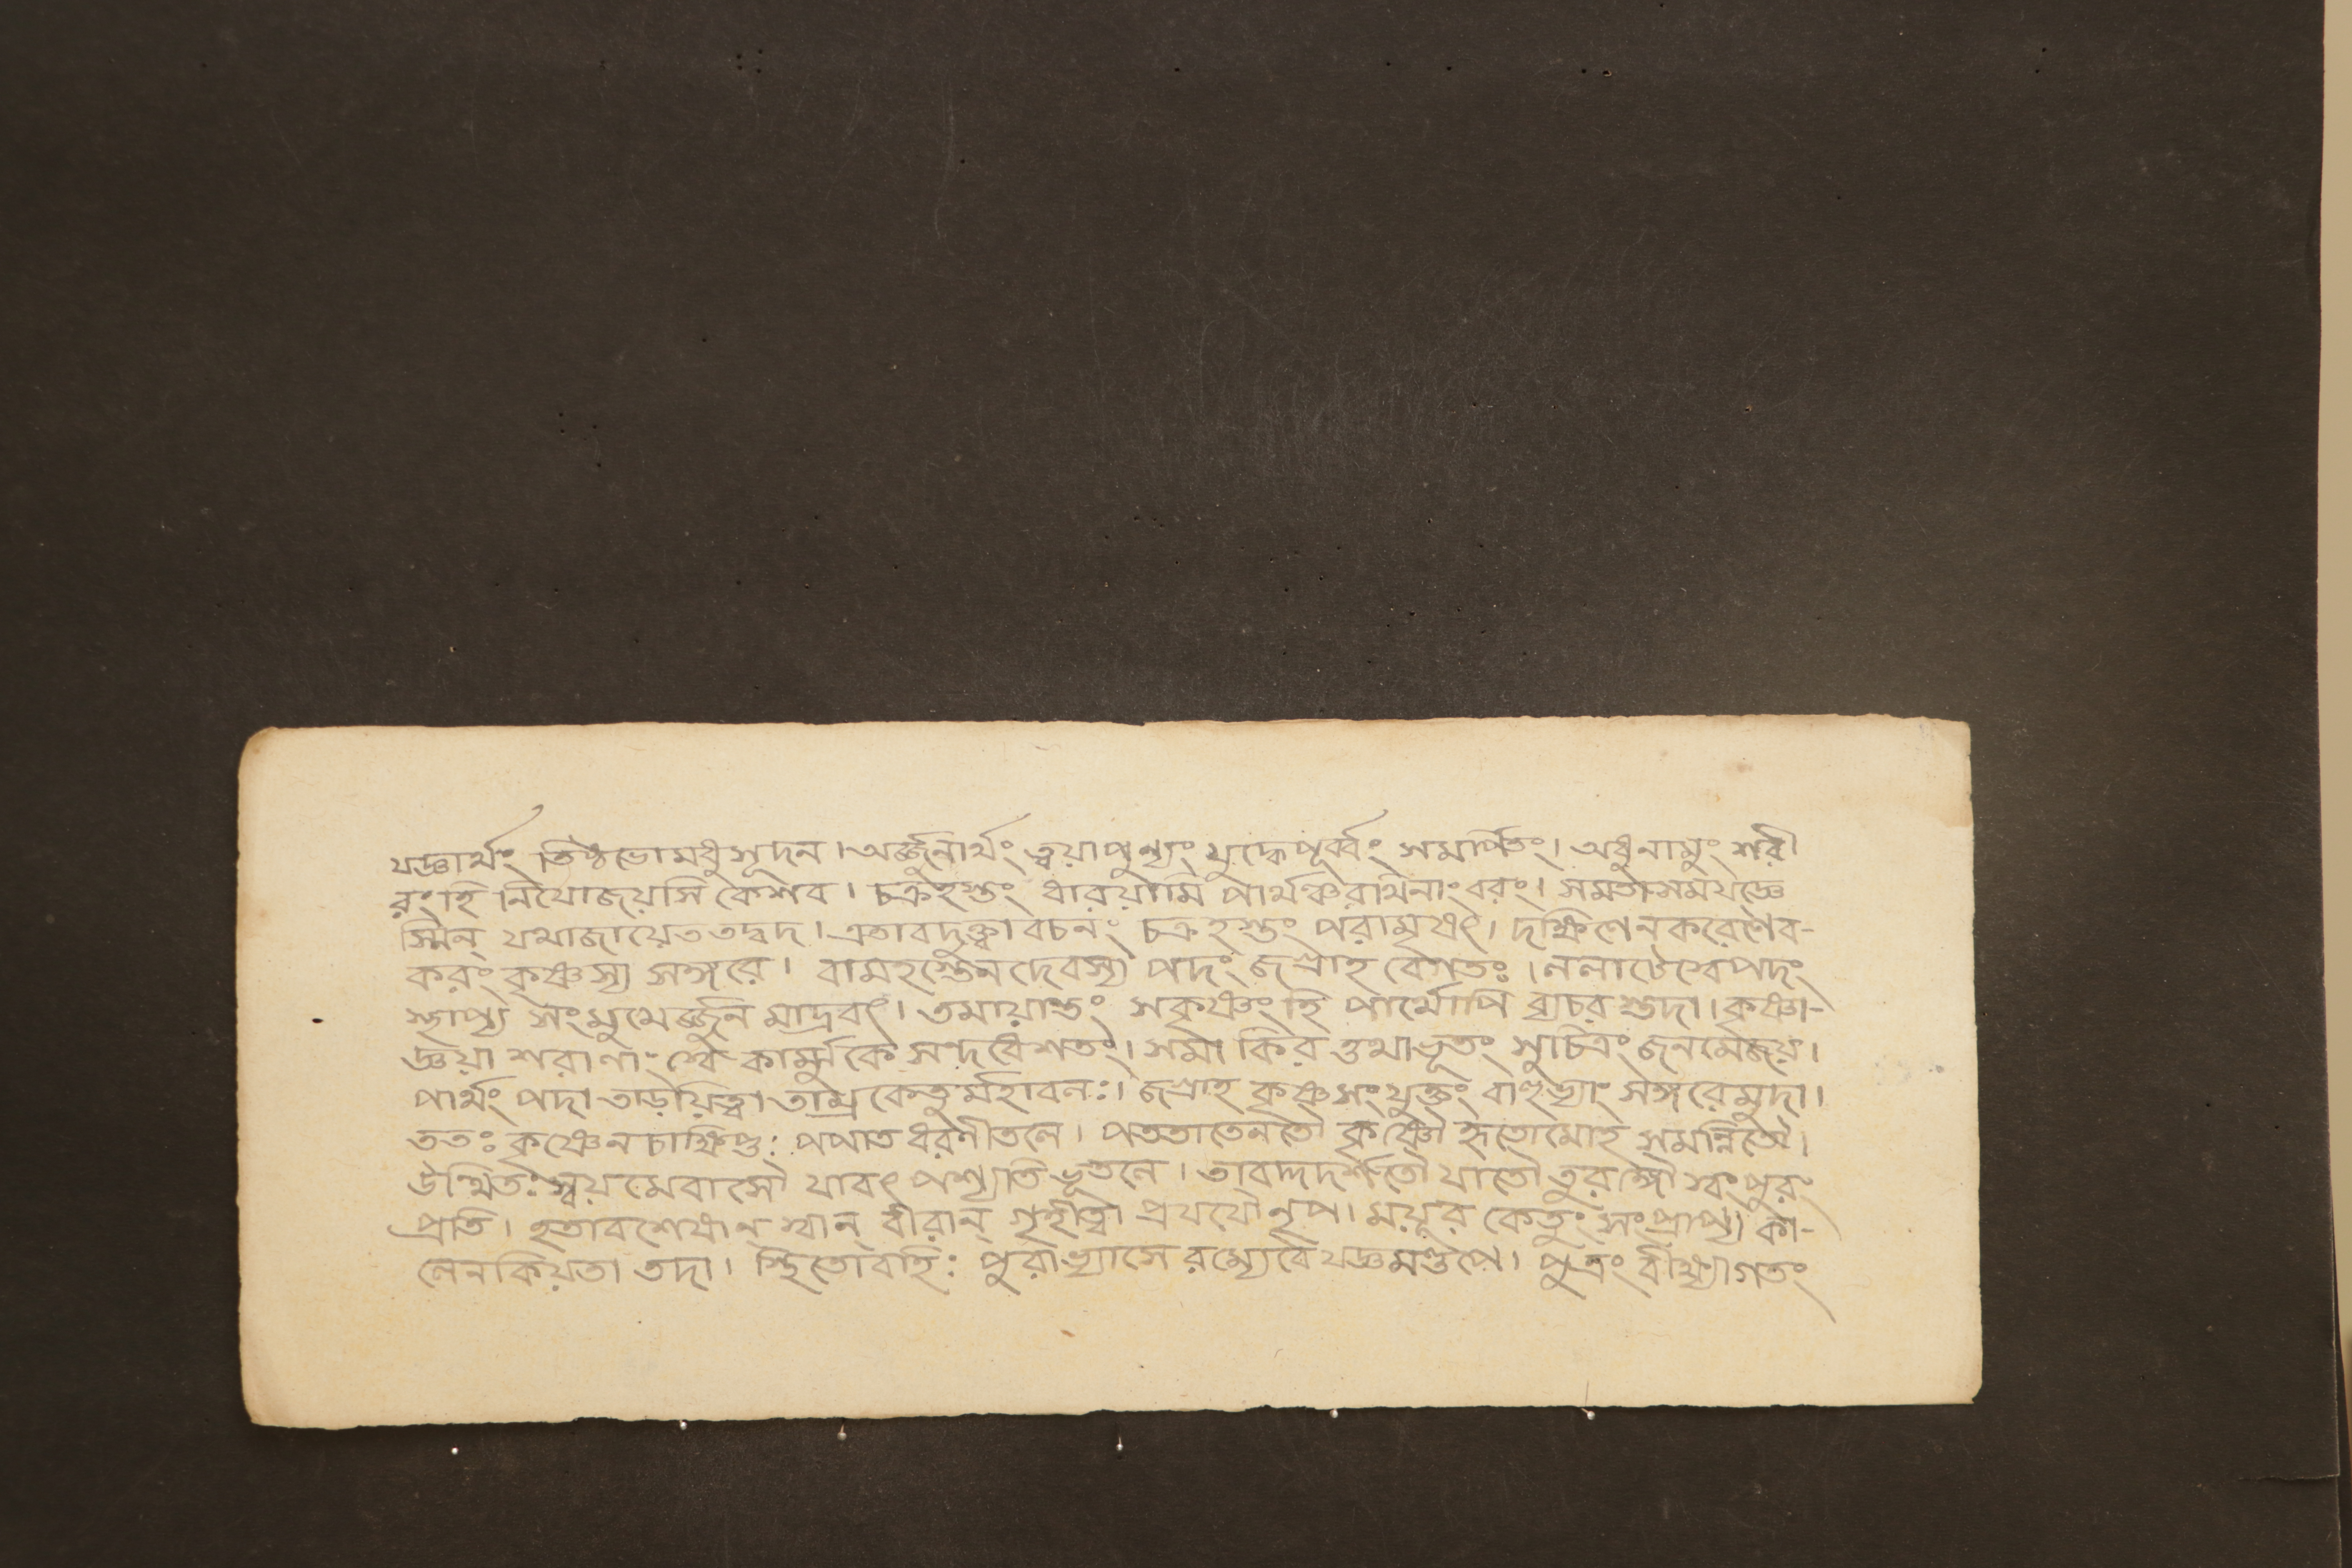 যজ্ঞার্থং তিষ্ঠভোমধুসূদন। অর্জ্জুনার্থং ত্বয়াপুণ্যং যুদ্ধেপূর্ব্বং সমার্পিতং। অধুনামুং শরী
রংহি নিযোজয়সি কেশব। চক্রহস্তং ধারয়ামি পার্থঞ্চরথিনাংবরং। সমর্তাসময়জ্ঞে
স্মিন্ যথাজায়েততদ্বদ। এতাবদুক্ত্বাবচনং চক্রহস্তং পরামৃষৎ। দক্ষিণেনকরেণৈব-
করং কৃষ্ণস্য সঙ্গরে। বামহস্তেনদেবস্য পদং জগ্রাহ বেগতঃ। ললাটেস্বেপদং
স্থাপ্য সংমুমেৰ্জ্জুন মাদ্রবৎ। তমায়ান্তং সকৃষ্ণংহি পার্থোপি ব্যচর স্তদা। কৃষ্ণা-
জ্ঞয়া শরাণাং স্বে কার্ম্মুকে সন্দধেশতং। সমা কির ত্তথাভূতং সুচিত্রং জনমেজয়।
পার্থং পদা তাড়য়িত্বা তাম্রকেতুর্মহাবলঃ। জগ্রাহ কৃষ্ণসংযুক্তং বাহুভ্যাং সঙ্গরেমুদা।
ততঃ কৃষ্ণেনচাক্ষিপ্তঃ পপাতধরণীতলে। পততাতেনতৌ কৃষ্ণৌ হৃতোমোহ সমন্বিতৌ।
উত্থিতঃ স্বয়মেবাসৌ যাবৎ পশ্যতি ভূতলে। তাবদ্দদর্শতৌ যাতৌ তুরঙ্গৌ স্বংপুরং
প্রতি। হতাবশেষান্ স্বান্ বীরান্ গৃহীত্বা প্রযযৌ নৃপ। ময়ূর কেতুং সংপ্রাপ্য কা-
লেনকিয়তা তদা। স্থিতোবহিঃ পুরাভ্যাসে রম্যেবৈযজ্ঞমণ্ডপে। পুত্রং বীক্ষ্যাগতং